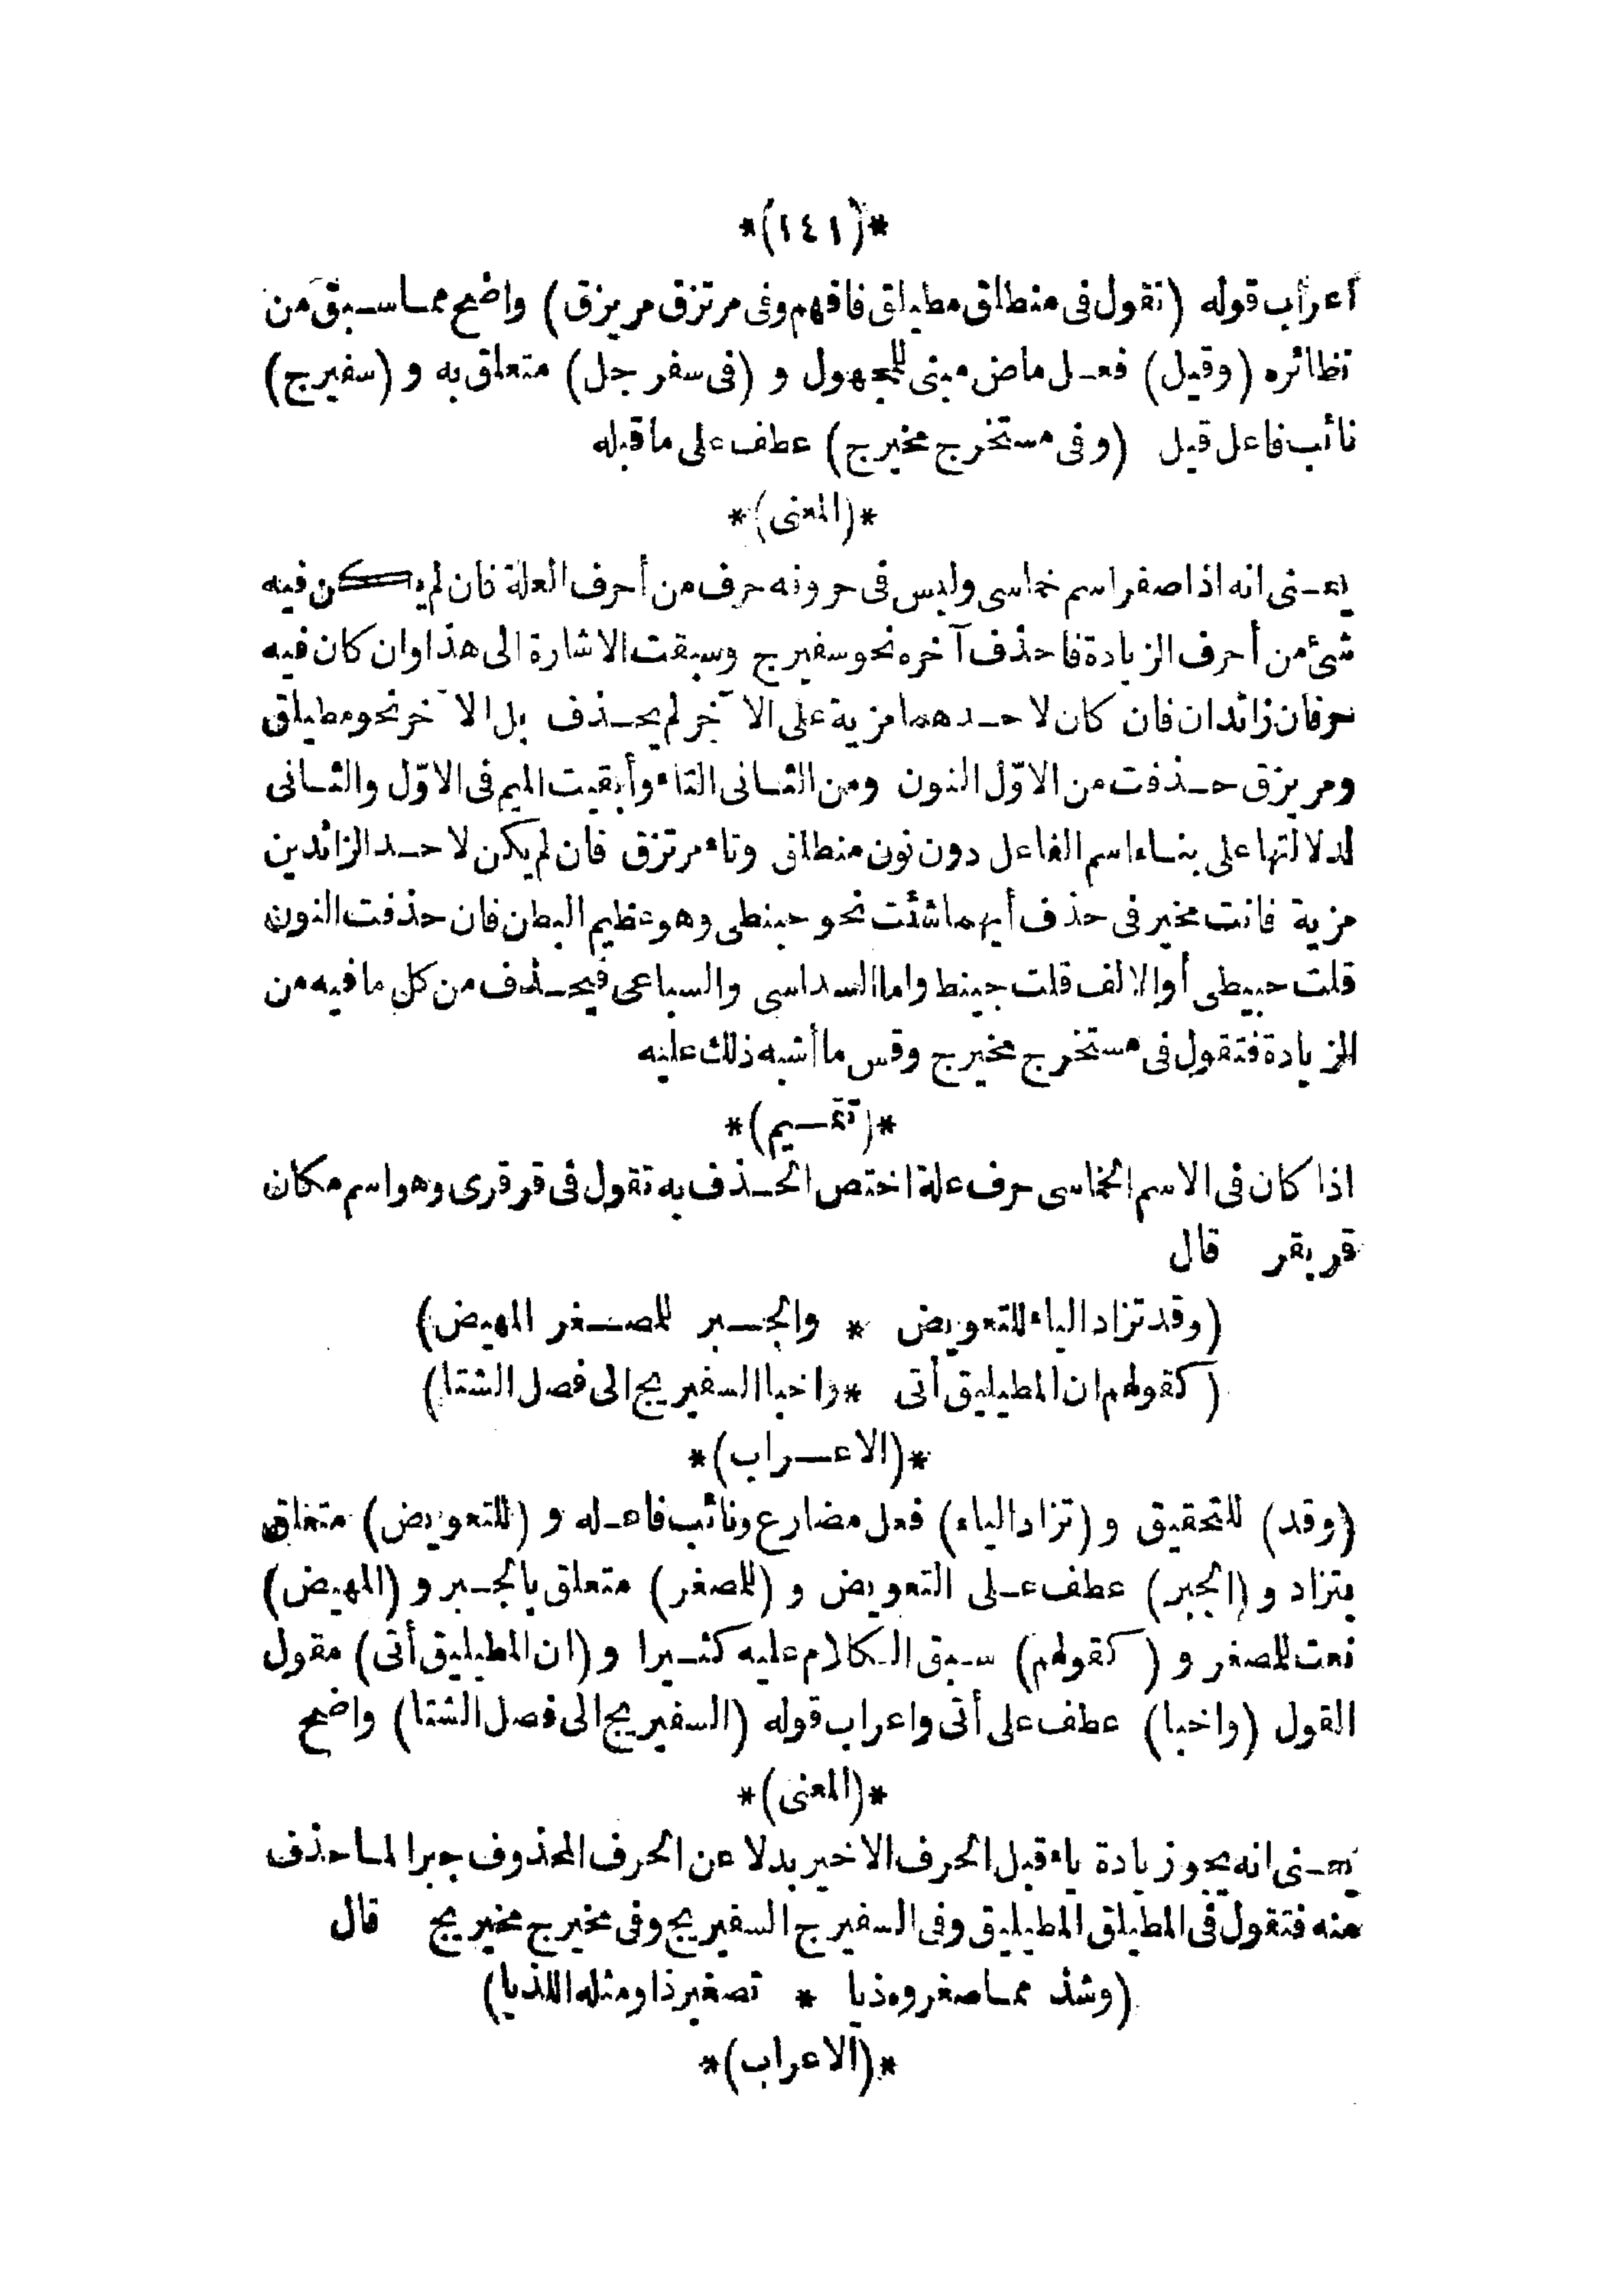 *(١٤١)*
اعراب قوله (تقول فى منطلق مطيلق فافهم وفى مرتزق مريزق) واضح مما سبق من
نظائره (وقيل) فعل ماض مبنى للمجهول و (فى سفرجل) متعلق به و (سفيرج)
نائب فاعل قيل (وفى مستخرج مخيرج) عطف على ماقبله
*(المعنى)*
يعنى انه اذا صغر اسم خماسى وليس فى حروفه حرف من أحرف العلة فان لم يكن فيه
شئ من أحرف الزيادة فاحذف آخره نحو سفيرج وسبقت الاشارة الى هذا وان كان فيه
حرفان زائدان فان كان لاحدهما مزية على الآخر لم يحذف بل الآخر نحو مطيلق
ومريزق حذفت من الاوّل النون ومن الثانى التاء وأبقيت الميم فى الاوّل والثانى
لدلالتها على بناء اسم الفاعل دون نون منطلق وتاء مرتزق فان لم يكن لاحد الزائدين
مزية فانت مخير فى حذف أيهما شئت نحو حبنطى وهو عظيم البطن فان حذفت النون
قلت حبيطى أو الالف قلت حبينط واما السداسى والسباعى فيحذف من كل ما فيه من
الزيادة فتقول فى مستخرج مخيرج وقس ما أشبه ذلك عليه
*(تقسيم)*
اذا كان فى الاسم الخماسى حرف علة اختص الحذف به تقول فى قرقرى وهو اسم مكان
قريقر قال
(وقد تزاد الياء للتعويض * والجبر للمصغر المهيض)
(كقولهم ان المطيليق أتى * واخبا السفيريج الى فصل الشتا)
*(الاعراب)*
(وقد) للتحقيق و (تزاد الياء) فعل مضارع ونائب فاعله و (للتعويض) متعلق
بتزاد و (الجبر) عطف على التعويض و (للمصغر) متعلق بالجبر و (المهيض)
نعت للمصغر و (كقولهم) سبق الكلام عليه كثيرا و (ان المطيليق أتى) مقول
القول (واخبا) عطف على أتى واعراب قوله (السفيريج الى فصل الشتا) واضح
*(المعنى)*
يعنى انه يجوز زيادة ياء قبل الحرف الاخير بدلا عن الحرف المحذوف جبرا لما حذف
منه فتقول فى المطيلق المطيليق وفى السفيرج السفيريج وفى مخيرج مخيريج قال
(وشذ مما صغروه ذيا * تصغير ذا ومثله اللذيا)
*(الاعراب)*